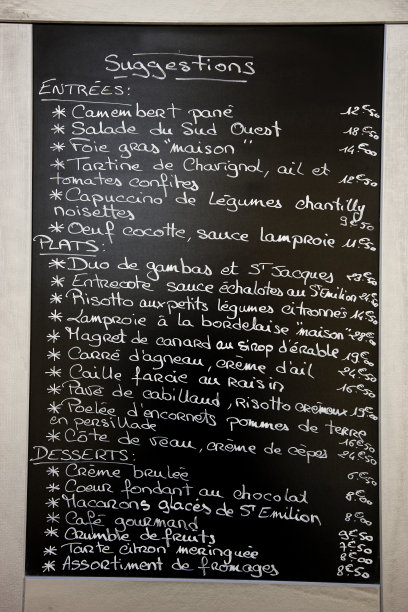 Suggestions
ENTRÉES:
* Camembert pané 12€50
* Salade du Sud Ouest 18€50
* Foie gras "maison" 14€00
* Tartine de Chavignol, ail et
tomates confites 12€50
* Capuccino de Légumes chantilly
noisettes 9€50
* Oeuf cocotte, sauce lamproie 11€50
PLATS:
* Duo de gambas et St Jacques 23€50
* Entrecôte sauce échalotes au St Emilion
* Risotto aux petits légumes citronnés 14€50
* Lamproie à la bordelaise "maison"
* Magret de canard au sirop d'érable 19€50
* Carré d'agneau, crème d'ail 24€50
* Caille farcie au raisin 16€50
* Pavé de cabillaud, risotto crémeux 19€50
* Poelée d'encornets pommes de terre
en persillade 16€50
* Côte de veau, crème de cèpes 24€50
DESSERTS:
* Crème brulée 6€50
* Coeur fondant au chocolat 8€00
* Macarons glacés de St Emilion
* Café gourmand 8€00
* Crumble de fruits 9€50
* Tarte citron meringuée 7€50
* Assortiment de fromages 8€00
8€50